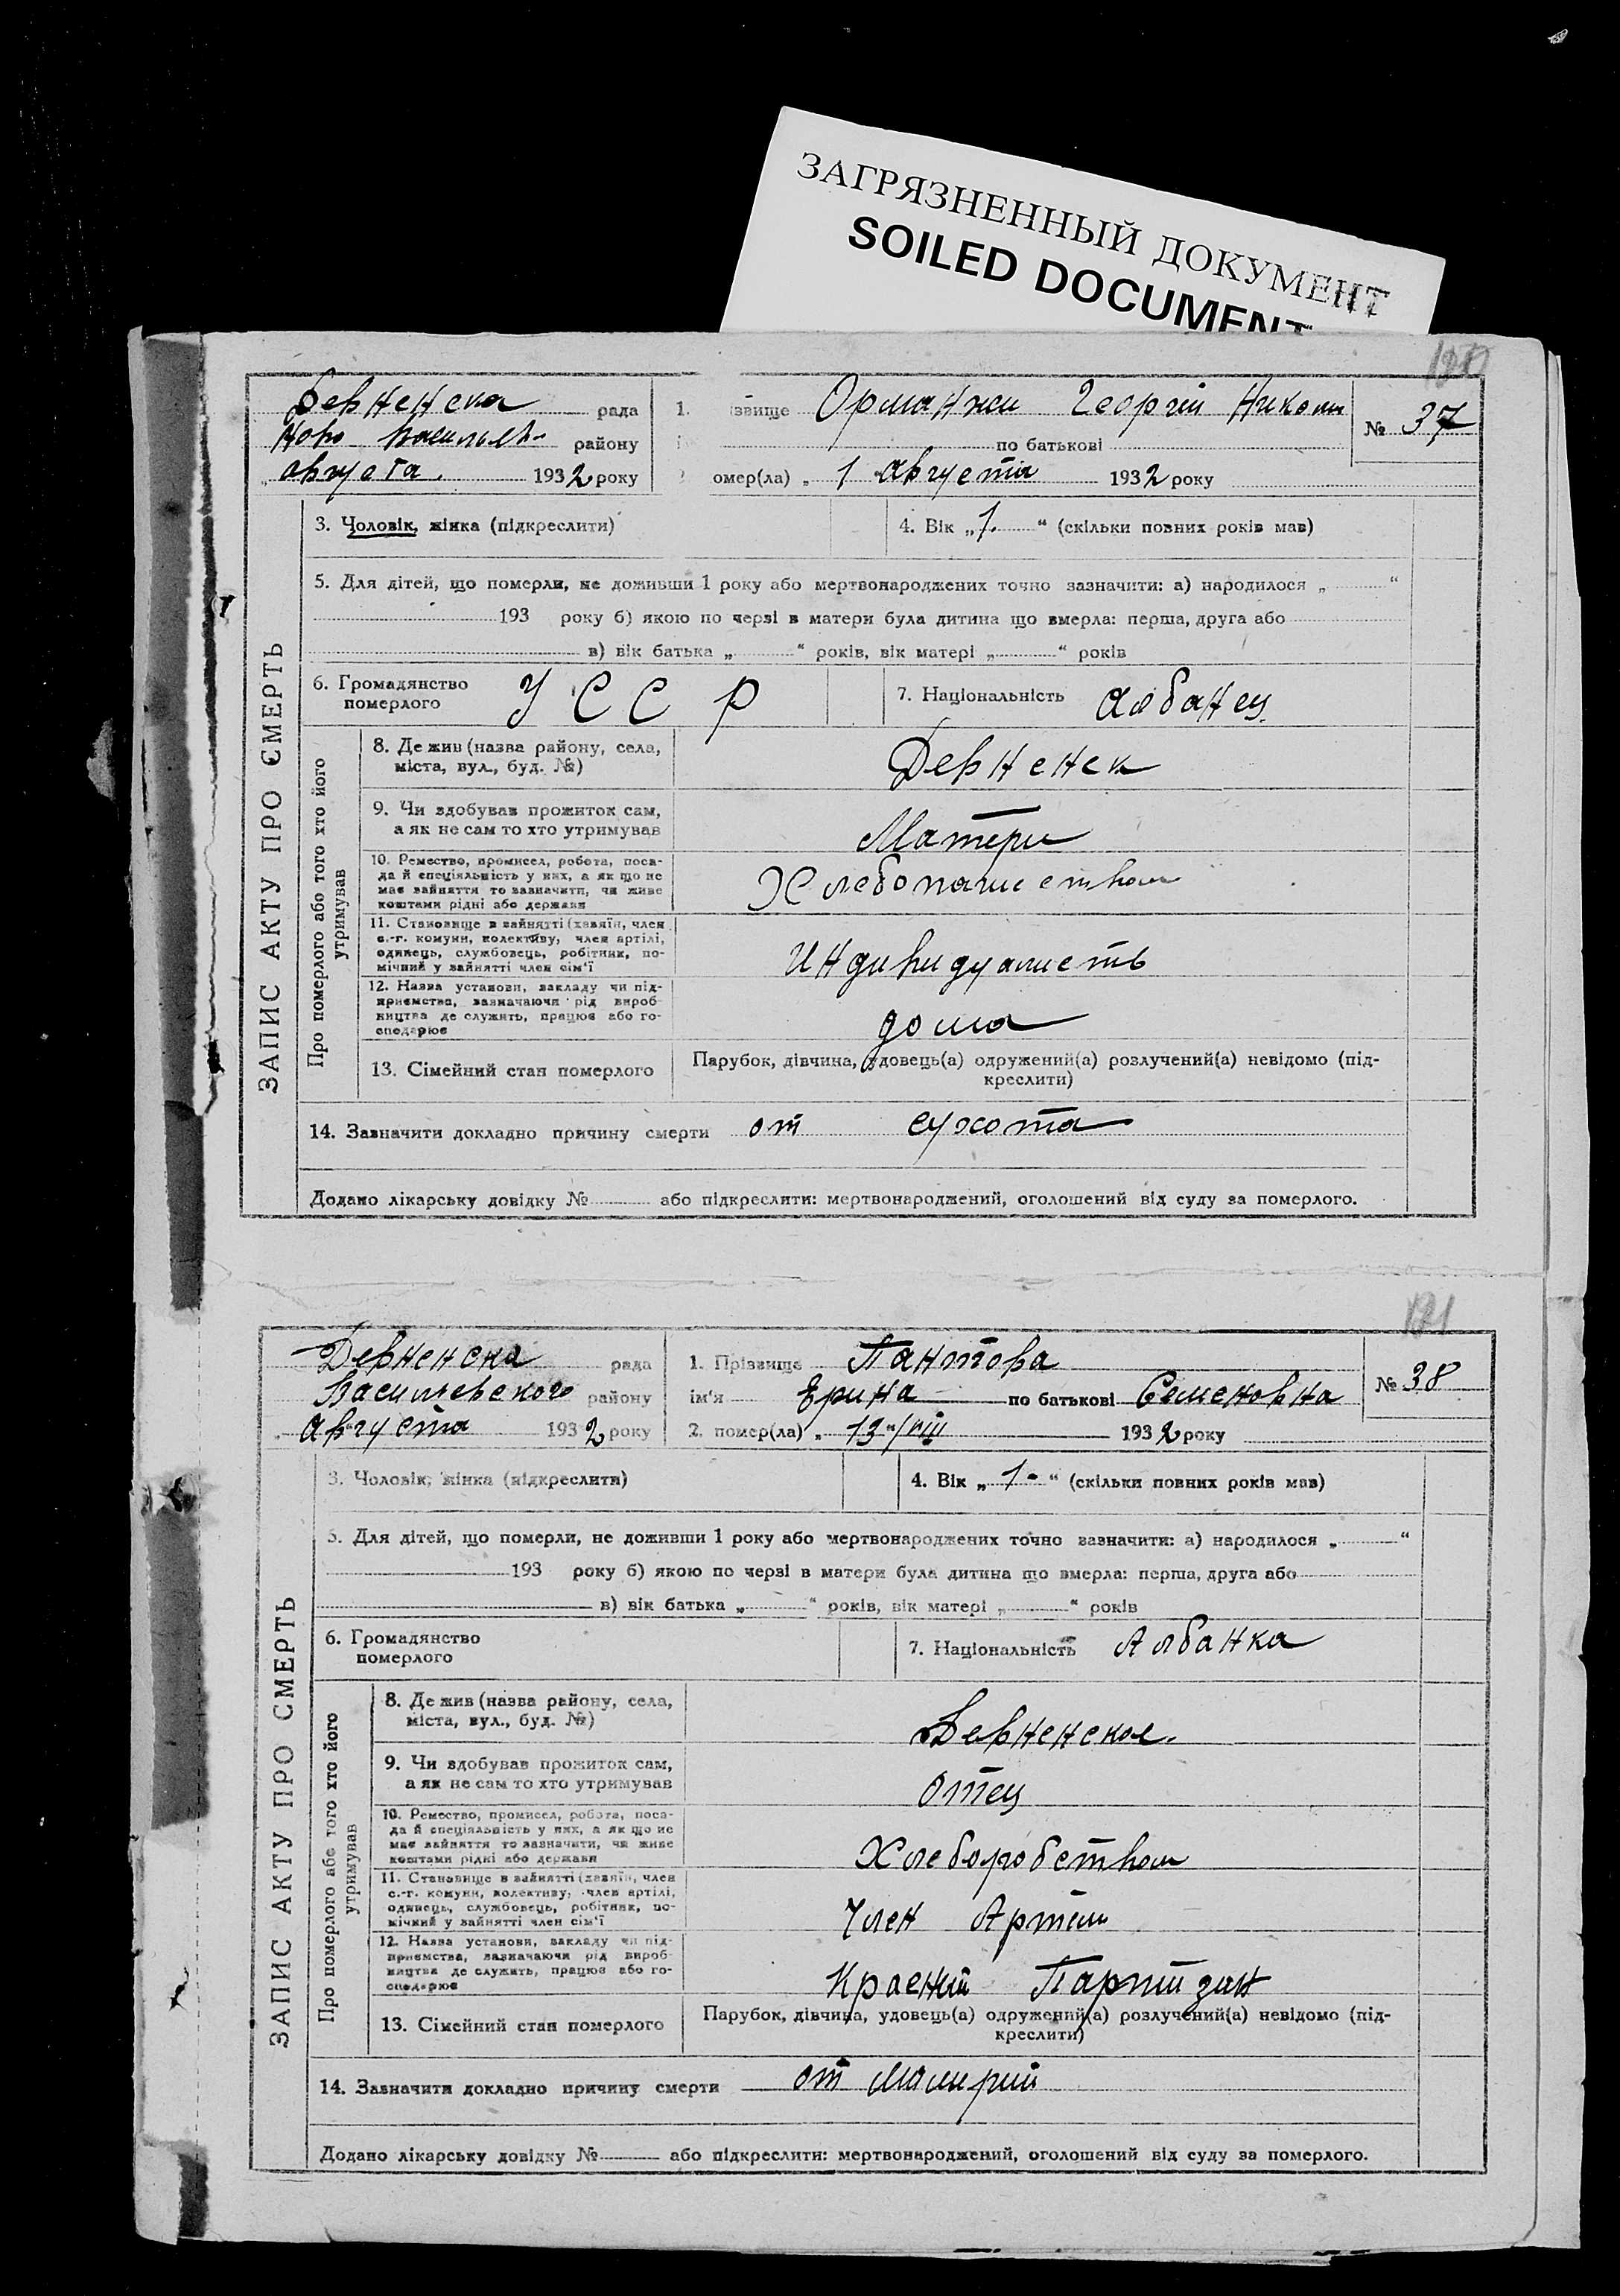 ЗАГРЯЗНЕННЫЙ ДОКУМЕНТ
SOILED DOCUMENT
Девненска рада
Ново Васильев- району
августа. 1932 року
1. ізвище Орманжи Георгій Никола
по батькові
омер(ла) „ 1 " августа 1932 року
№ 37
ЗАПИС АКТУ ПРО СМЕРТЬ
3. Чоловік, жінка (підкреслити)
4. Вік „ 1. “ (скільки повних років мав)
5. Для дітей, що померли, не доживши 1 року або мертвонароджених точно зазначити: а) народилося „ “
193 року б) якою по черзі в матери була дитина що вмерла: перша, друга або
в) вік батька „ “ років, вік матері „ “ років
6. Громадянство померлого У С С Р
7. Національність Албанец
Про померлого або того хто його утримував
8. Де жив (назва району, села,
міста, вул., буд. №)
Девненск
9. Чи здобував прожиток сам,
а як не сам то хто утримував
Матери
10. Ремество, промисел, робота, поса-
да й спеціяльність у них, а як що не
має зайняття то зазначити, чи живе
коштами рідні або держави
11. Становище в зайнятті (хазяїн, член
с.-г. комуни, колективу, член артілі,
одинець, службовець, робітник, по-
мічний у зайнятті член сім'ї
Индивидуалисть
12. Назва установи, закладу чи під-
приємства, зазначаючи рід вироб-
ництва де служить, працює або го-
сподарює
дома
13. Сімейний стан померлого
Парубок, дівчина, удовець(а) одружений(а) розлучений(а) невідомо (під-
креслити)
14. Зазначити докладно причину смерти от сухота
Додано лікарську довідку № або підкреслити: мертвонароджений, оголошений від суду за померлого.
Девненска рада
Василевского району
Августа 1932 року
1. Прізвище Пантова
ім'я Ерина по батькові Семеновна
2. помер(ла) „ 13 "/VIII 1932 року
№ 38
ЗАПИС АКТУ ПРО СМЕРТЬ
3. Чоловік, жінка (підкреслити)
4. Вік „ 1- “ (скільки повних років мав)
5. Для дітей, що померли, не доживши 1 року або мертвонароджених точно зазначити: а) народилося „ “
193 року б) якою по черзі в матери була дитина що вмерла: перша, друга або
в) вік батька „ “ років, вік матері „ “ років
6. Громадянство
померлого
7. Національність Албанка
Про померлого або того хто його утримував
8. Де жив (назва району, села,
міста, вул., буд. №)
Девненское.
9. Чи здобував прожиток сам,
а як не сам то хто утримував
Отец
10. Ремество, промисел, робота, поса-
да й спеціяльність у них, а як що не
має зайняття то зазначити, чи живе
коштами рідні або держави
11. Становище в зайнятті (хазяїн, член
с.-г. комуни, колективу, член артілі,
одинець, службовець, робітник, по-
мічний у зайнятті член сім'ї
Член Артели
12. Назва установи, закладу чи під-
приємства, зазначаючи рід вироб-
ництва де служить, працює або го-
сподарює
Красний Партизан
13. Сімейний стан померлого
Парубок, дівчина, удовець(а) одружений(а) розлучений(а) невідомо (під-
креслити)
14. Зазначити докладно причину смерти от Малирии
Додано лікарську довідку № або підкреслити: мертвонароджений, оголошений від суду за померлого.